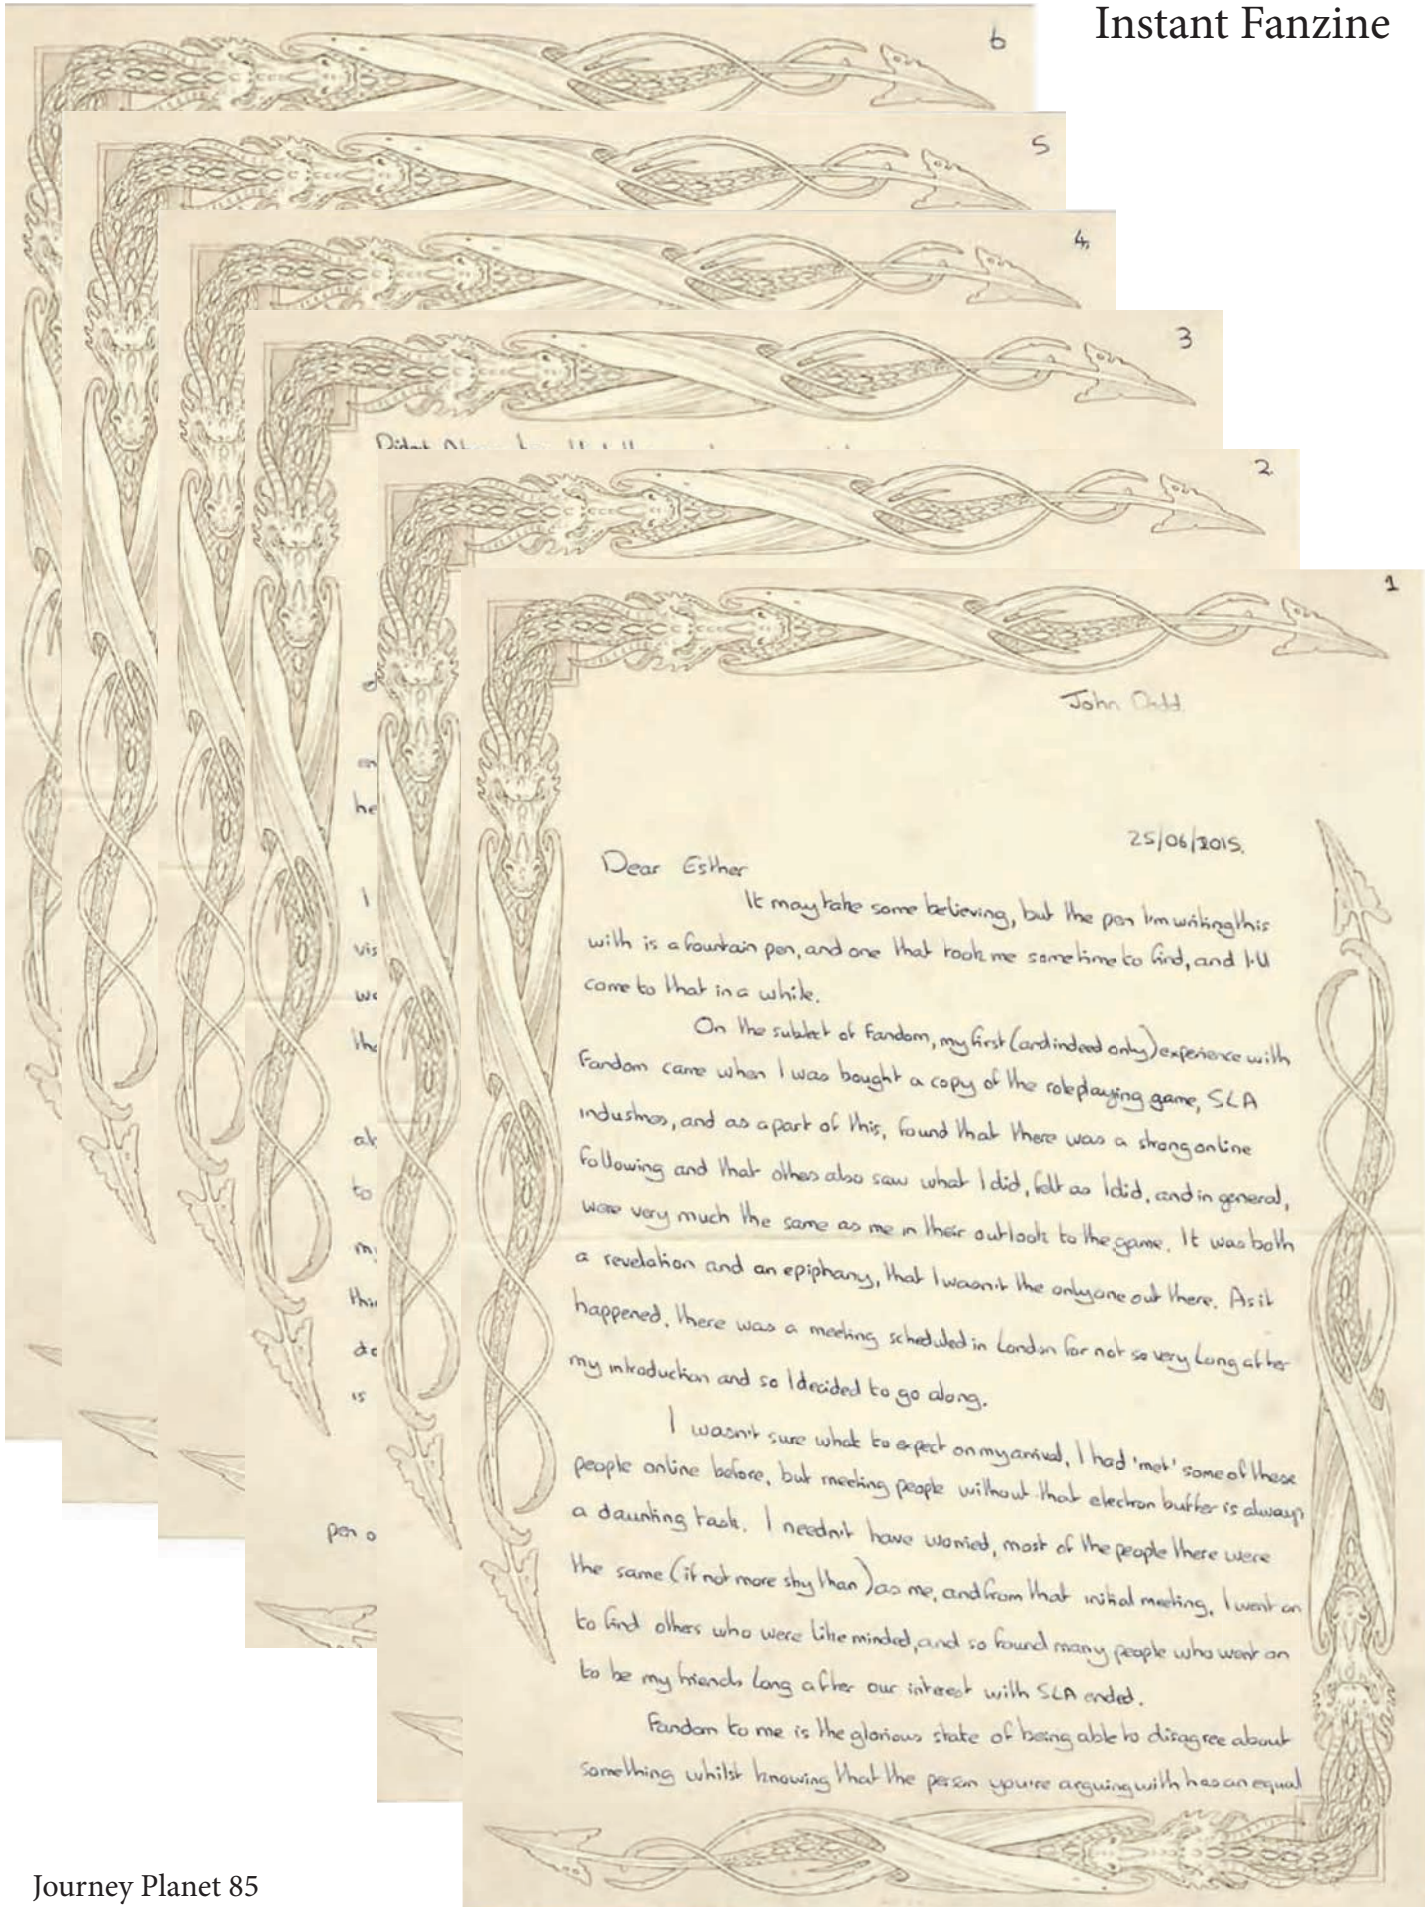 Instant Fanzine
6
5
4
3
2
1
John Dodd
25/06/2015.
Dear Esther
It may take some believing, but the pen I'm writing this
with is a fountain pen, and one that took me some time to find, and I'll
come to that in a while.
On the subject of Fandom, my first (and indeed only) experience with
Fandom came when I was bought a copy of the roleplaying game, SLA
industries, and as a part of this, found that there was a strong online
following and that others also saw what I did, felt as I did, and in general,
were very much the same as me in their outlook to the game. It was both
a revelation and an epiphany, that I wasn't the only one out there. As it
happened, there was a meeting scheduled in London for not so very long after
my introduction and so I decided to go along.
I wasn't sure what to expect on my arrival, I had 'met' some of these
people online before, but meeting people without that electron buffer is always
a daunting task. I needn't have worried, most of the people there were
the same (if not more shy than) as me, and from that initial meeting, I went on
to find others who were like minded, and so found many people who went on
to be my friends long after our interest with SLA ended.
Fandom to me is the glorious state of being able to disagree about
something whilst knowing that the person you're arguing with has an equal
he
I
vis
we
the
to
my
is
pen o
Journey Planet 85